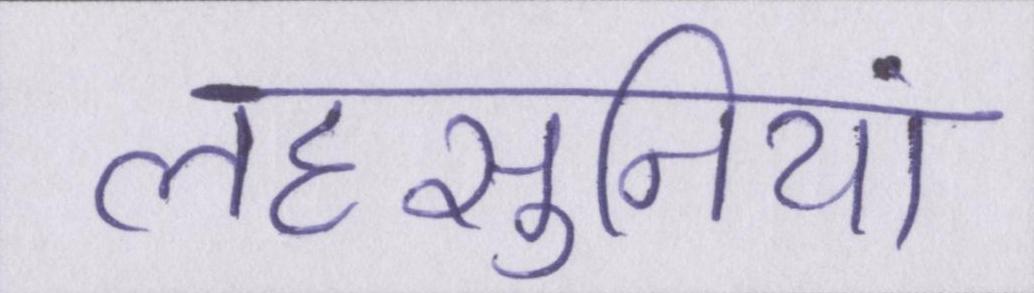 लहसुनियां